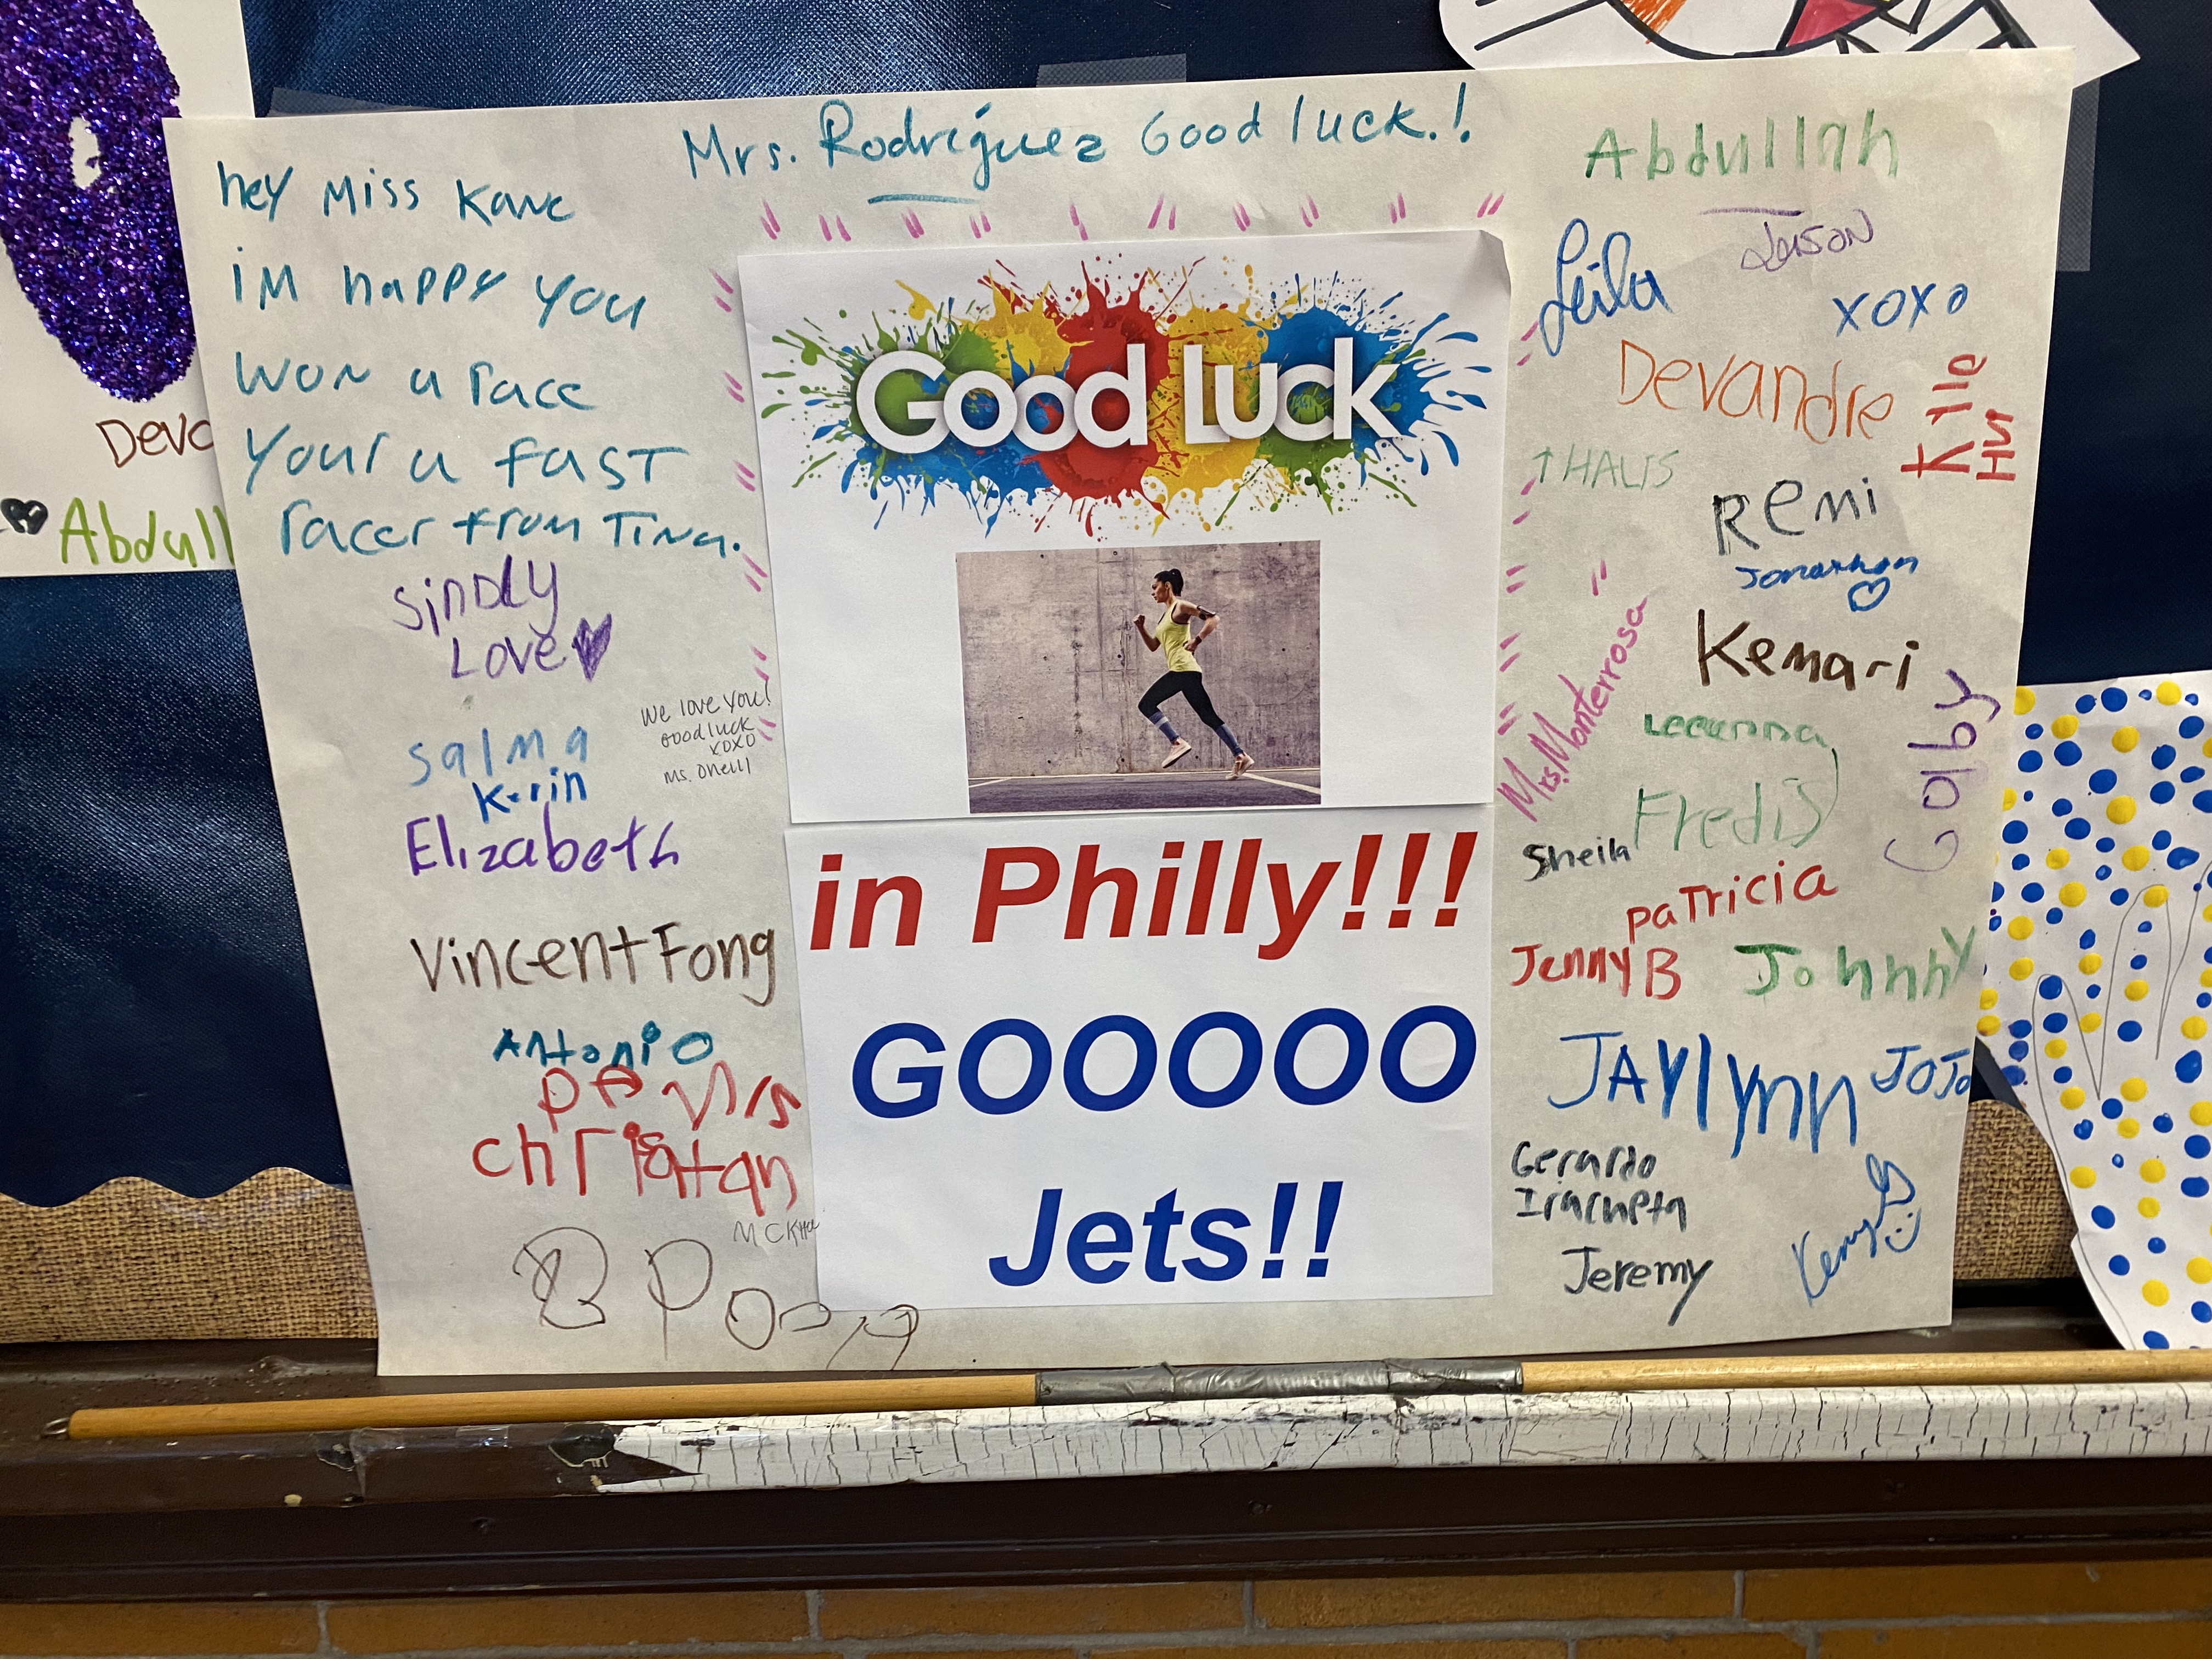 Mrs. Rodríguez Good luck.!
hey Miss Kane
im happy you
won a race
Your a fast
racer from Tina.
Sindly
Love
We love you!
Good luck
XOXO
Ms. Oneill
Salma
Kerin
Elizabeth
Vincent Fong
Antonio
christan
B
Good Luck
in Philly!!!
GOOOOO
Jets!!
Abdullah
Leila
Jeison
XOXO
Devandre
Kyle
Hui
THALIS
Remi
Jonathan
Kemari
Mrs. Monterrosa
Leeanna
Galby
Fredis
Sheila
Patricia
Jenny B
Johnny
JAYlynn
JOJO
Gerardo
Iracheta
Jeremy
Devo
Abdull